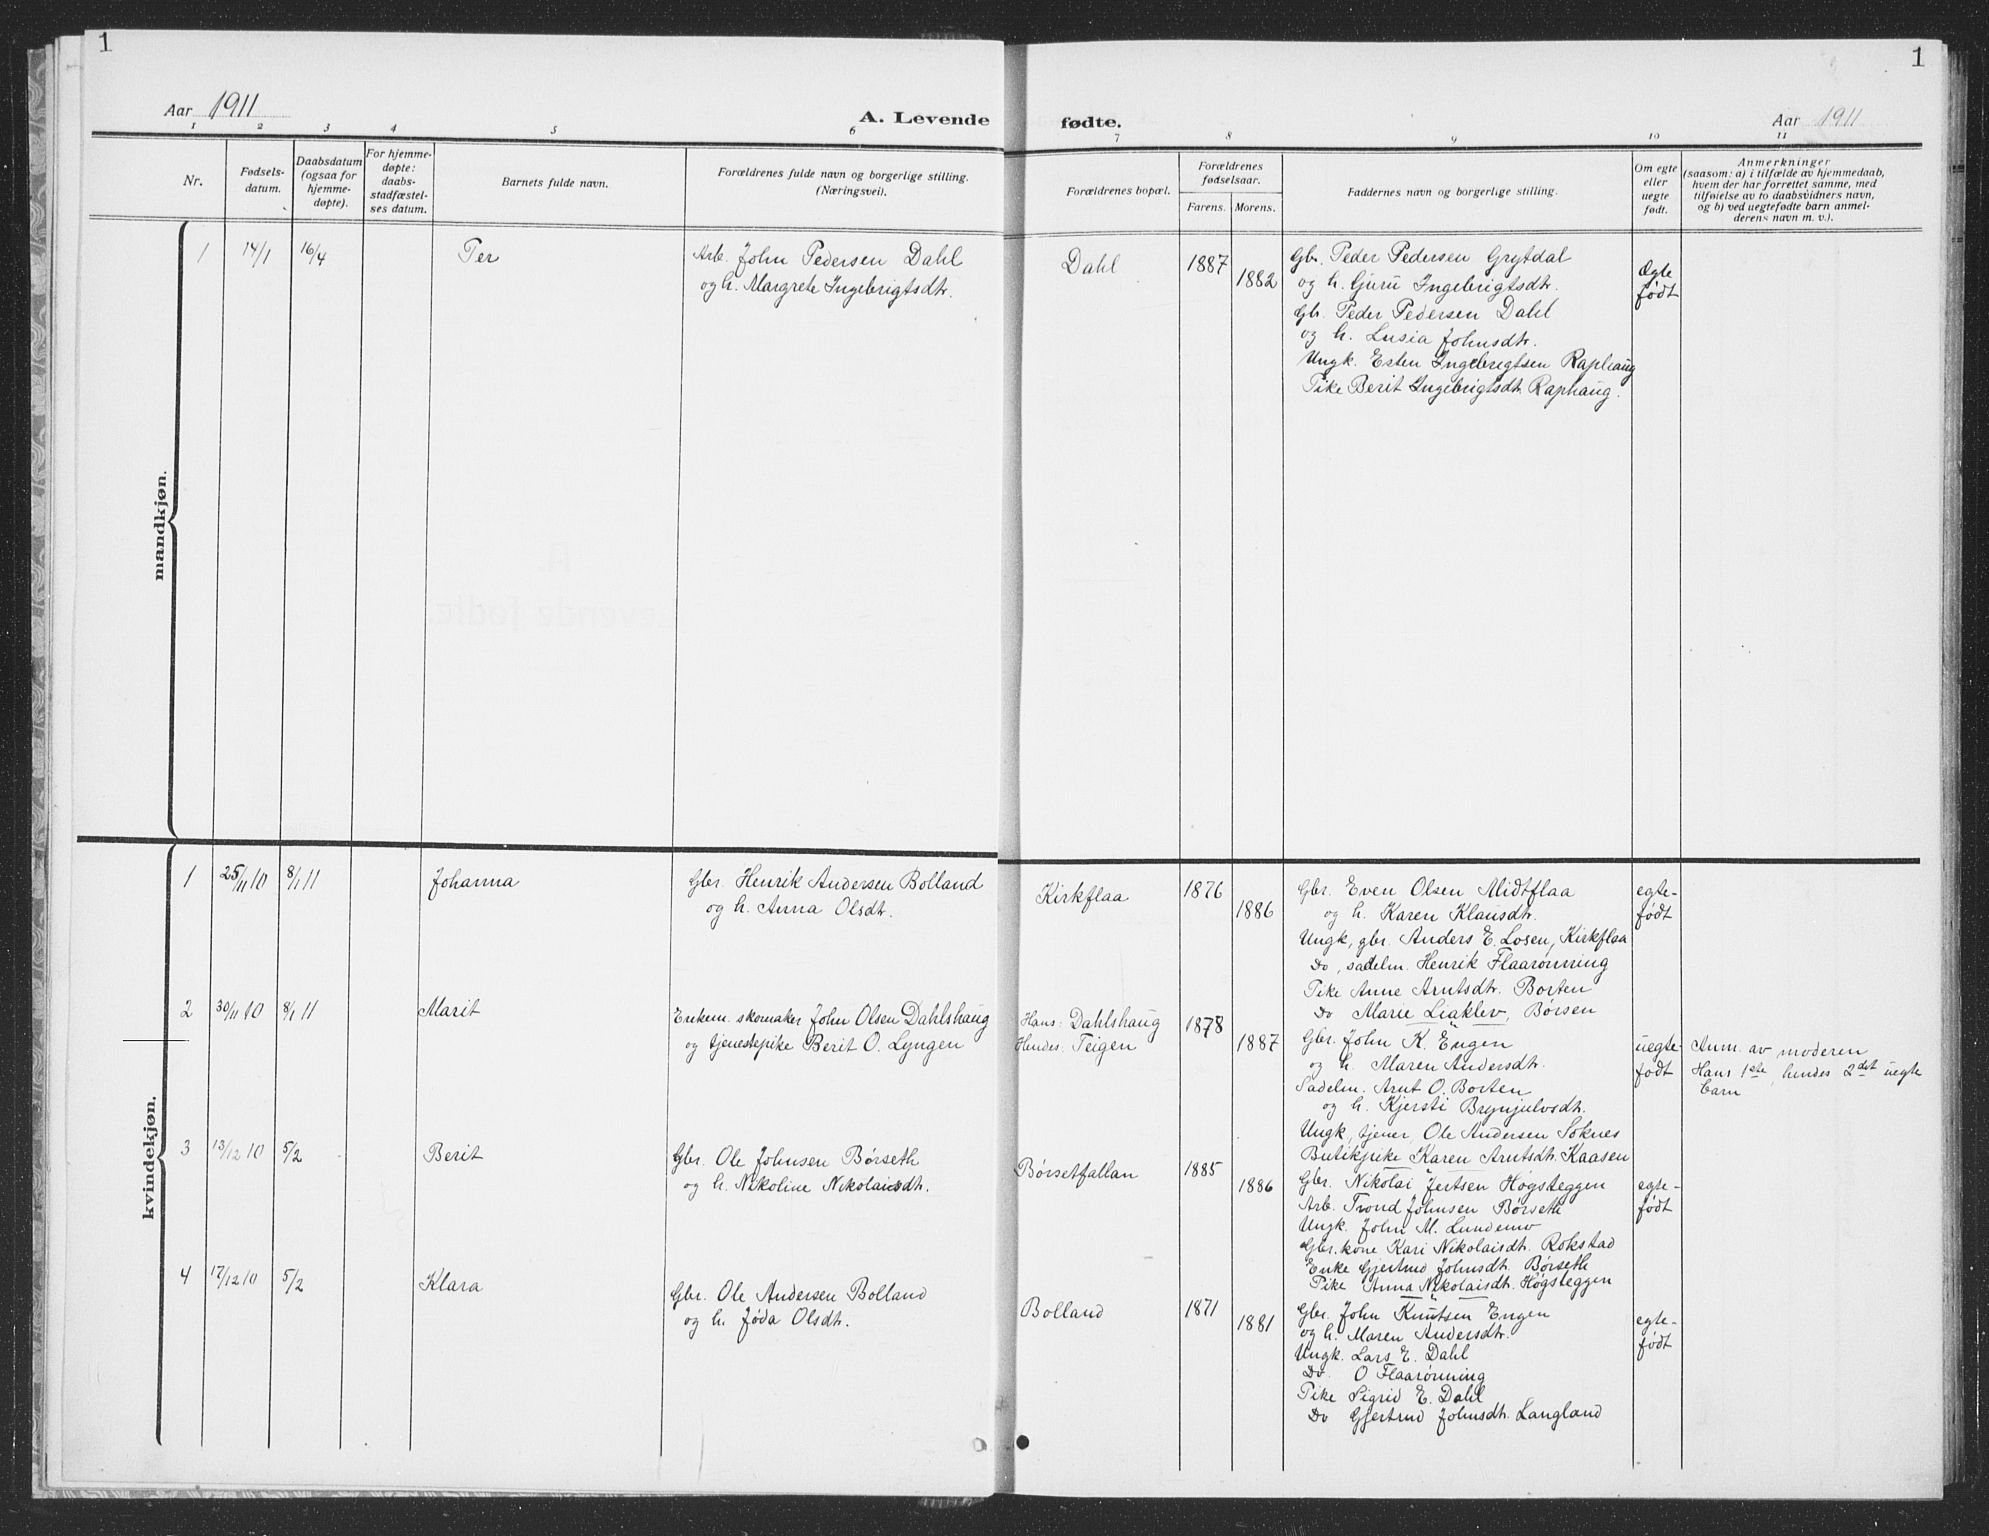 1
1
Aar 1911
A. Levende fødte.
Aar 1911
1 2 3 4 5 6 7 8 9 10 11
Nr.
Fødsels-
datum.
Daabsdatum
(ogsaa for
hjemme-
døpte).
For hjemme-
døpte:
daabs-
stadfæstel-
ses datum.
Barnets fulde navn.
Forældrenes fulde navn og borgerlige stilling.
(Næringsvei).
Forældrenes bopæl.
Forældrenes
fødselsaar.
Farens. Morens.
Faddernes navn og borgerlige stilling.
Om egte
eller
uegte
født.
Anmerkninger
(saasom: a) i tilfælde av hjemmedaab,
hvem der har forrettet samme, med
tilføielse av to daabsvidners navn,
og b) ved uegtefødte barn anmel-
derens navn m. v.).
mandkjøn.
1 14/1 16/4 Per
Arb. John Pedersen Dahl
og h. Margrete Ingebrigtsdtr.
Dahl 1887 1882
Gbr. Peder Pedersen Grytdal
og h. Guru Ingebrigtsdtr.
Gbr. Peder Pedersen Dahl
og h. Lusia Johnsdtr.
Ungk. Esten Ingebrigtsen Raphaug
Pike Berit Ingebrigtsdtr. Raphaug.
Egte
født
kvindekjøn.
1 25/11 10 8/1 11 Johanna
Gbr. Henrik Andersen Bolland
og h. Anna Olsdtr.
Kirkflaa 1876 1886
Gbr. Even Olsen Midtflaa
og h. Karen Klausdtr.
Ungk, gbr. Anders E. Losen, Kirkflaa
Do, sadelm. Henrik Flaarønning
Pike Anne Arntsdtr. Borten
Do Marie Liaklev, Børsen
egte-
født
2 30/11 10 8/1 11 Marit
Enkem. skomaker John Olsen Dahlshaug
og tjenestepike Berit O. Lyngen
Hans: Dahlshaug
Hendes: Teigen
1878 1887
Gbr. John K. Engen
og h. Maren Andersdtr.
Sadelm. Arnt O. Borten
og h. Kjersti Brynjulvsdtr.
Ungk, tjener, Ole Andersen Soknes
Butikpike Karen Arntsdtr. Kaasen
uegte
født
Anm. av moderen
Hans 1ste, hendes 2det uegte
barn
3 13/12 10 5/2 Berit
Gbr. Ole Johnsen Børseth
og h. Nikoline Nikolaisdtr.
Børsetfallan 1885 1886
Gbr. Nikolai Jertsen Høgsteggen
Arb. Trond Johnsen Børseth
Ungk. John M. Lundemo
Gbr.kone Kari Nikolaisdtr. Rokstad
Enke Gjertrud Johnsdtr. Børseth
Pike Anna Nikolaisdtr. Høgsteggen
egte-
født
4 17/12 10 5/2 Klara
Gbr. Ole Andersen Bolland
og h. Jøda Olsdtr.
Bolland 1871 1881
Gbr. John Knutsen Engen
og h. Maren Andersdtr.
Ungk. Lars E. Dahl
Do. O Flaarønning
Pike Sigrid E. Dahl
Do Gjertrud Johnsdtr. Langland
egte-
født